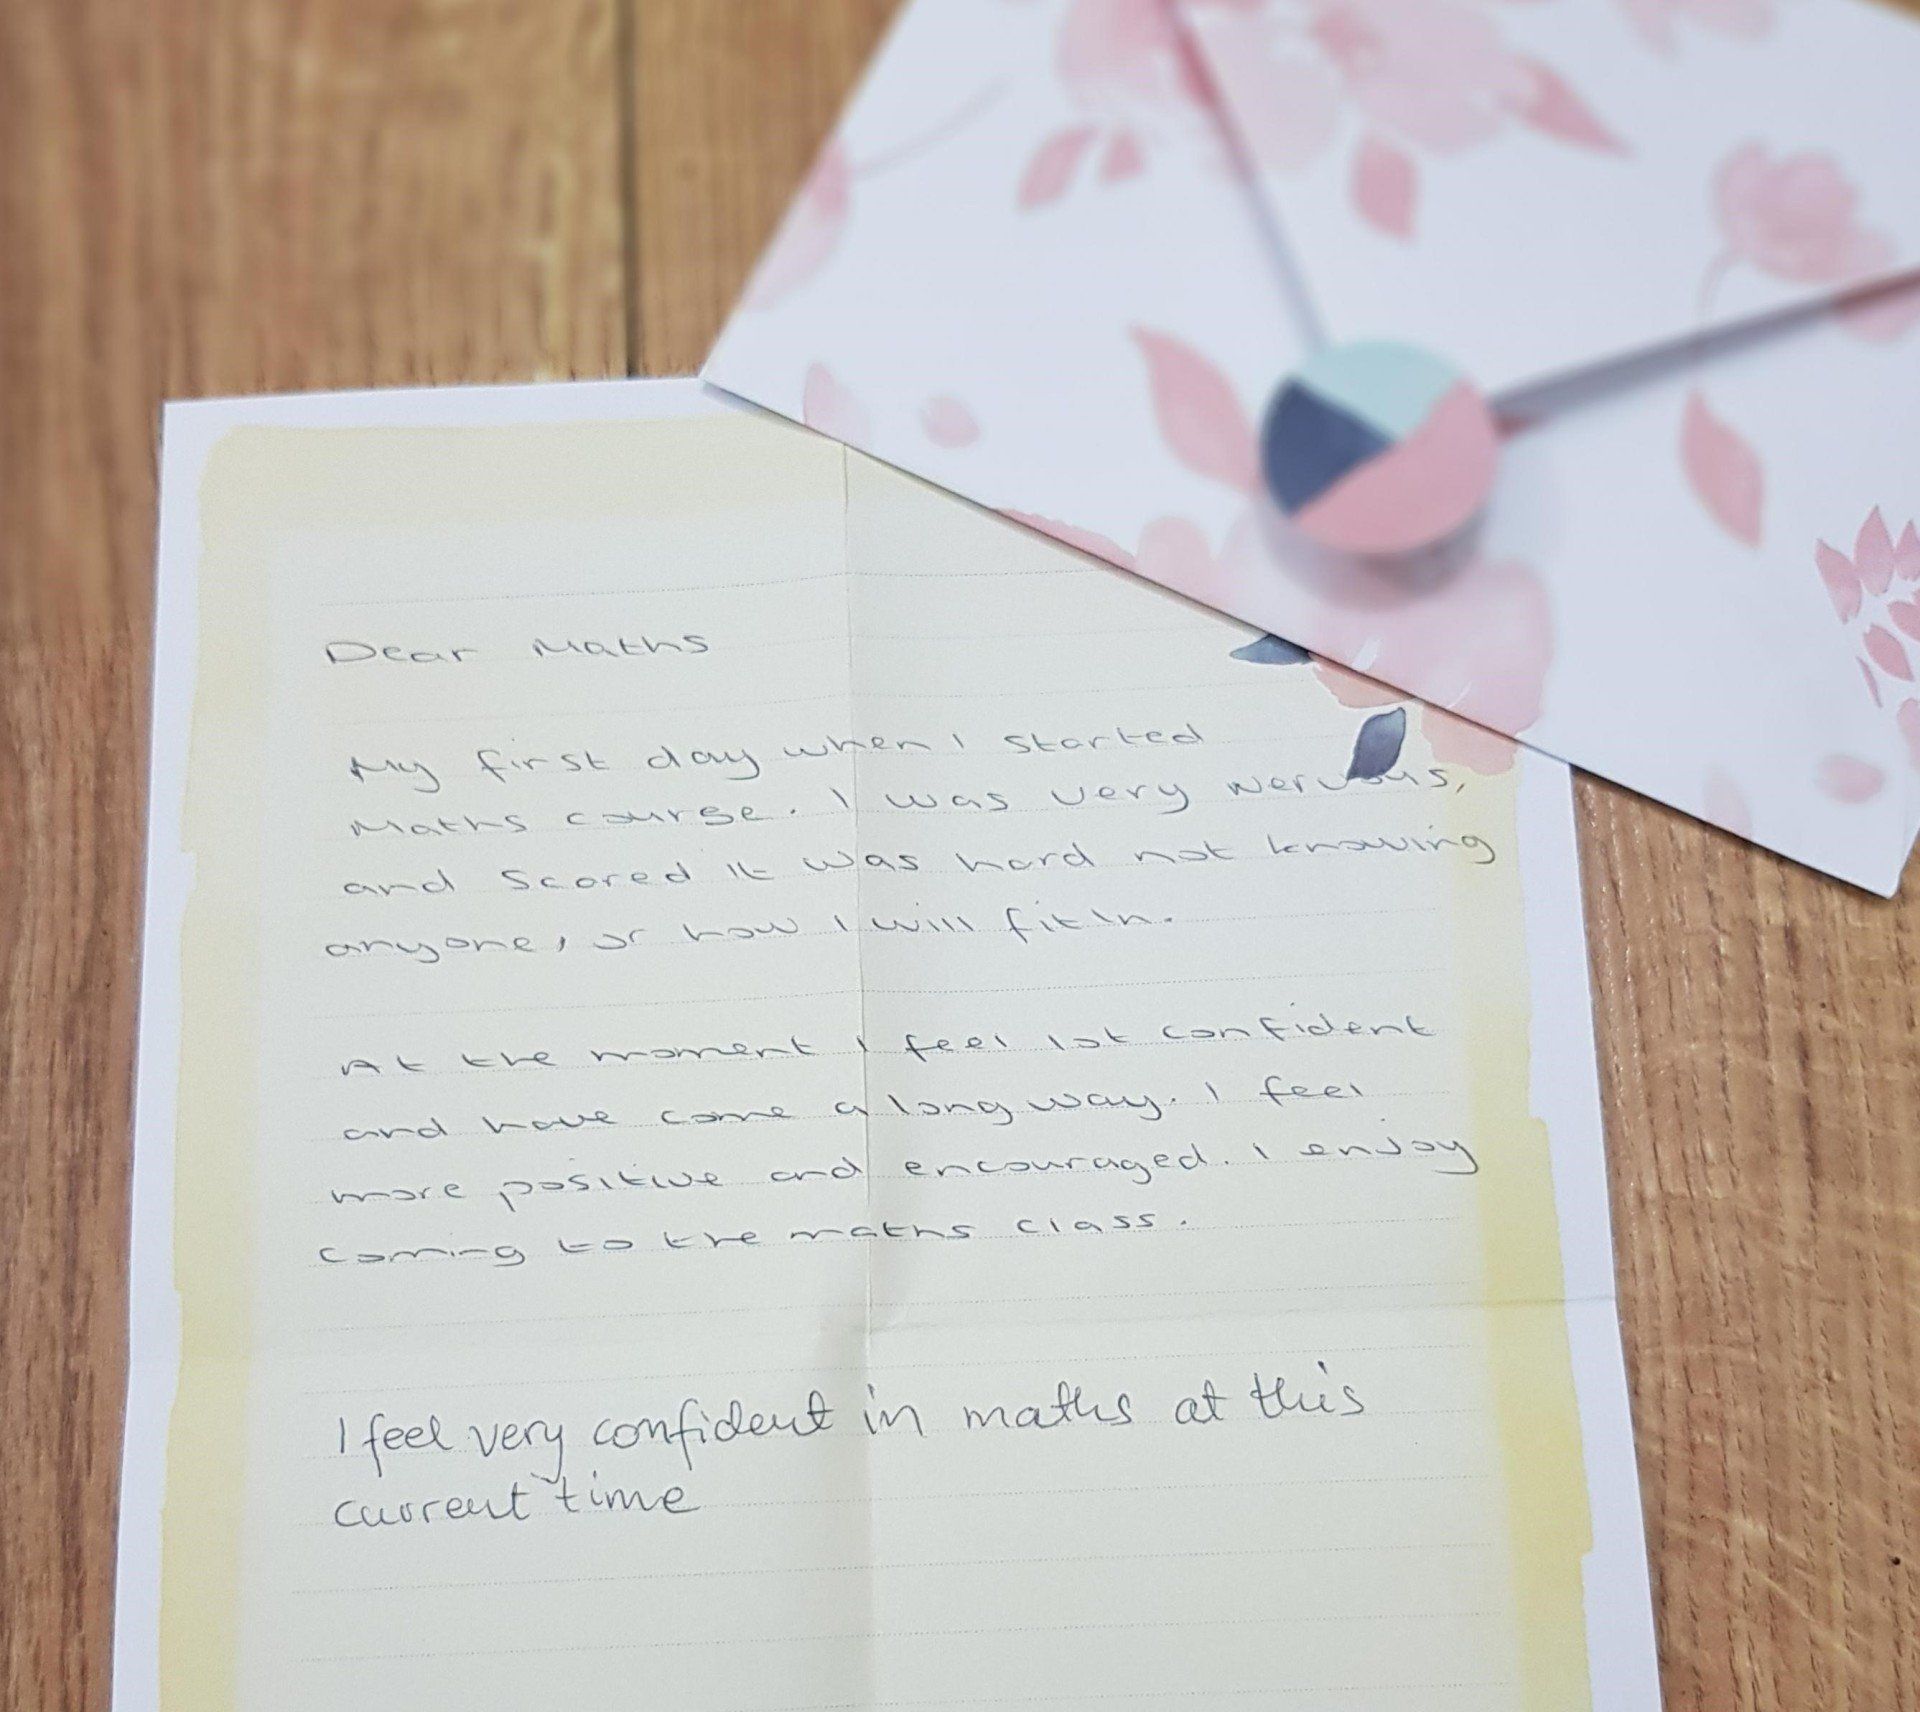 Dear Maths
My first day when I started
Maths course. I was very nervous,
and Scared It was hard not knowing
anyone, or how I will fit In.
At the moment I feel lot confident
and have come a long way. I feel
more positive and encouraged. I enjoy
coming to the maths class.
I feel very confident in maths at this
current time